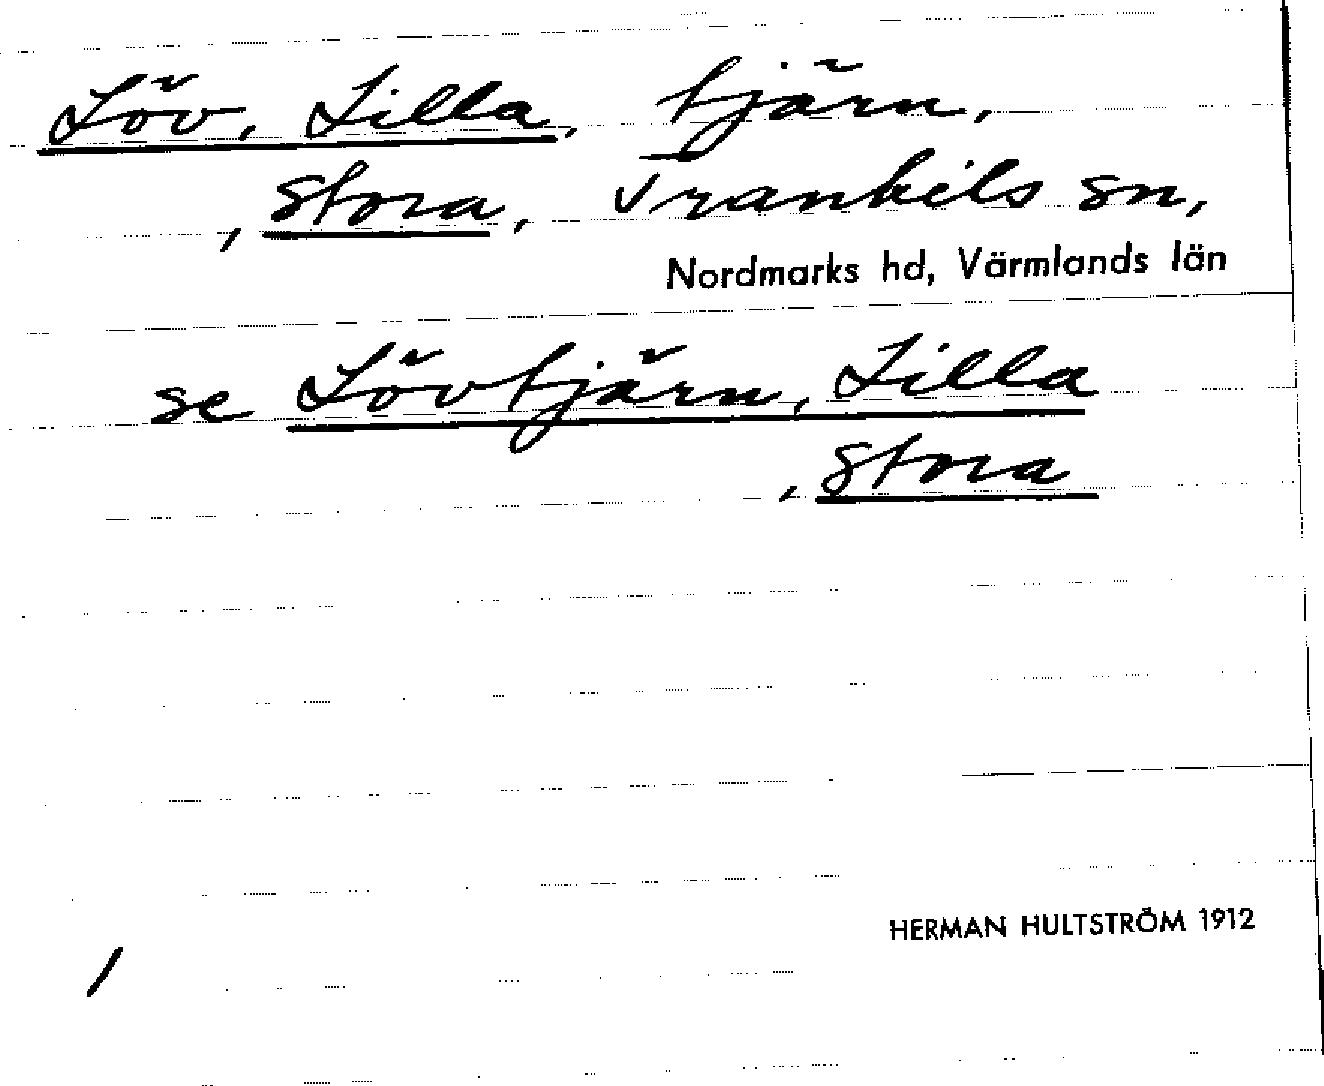 Löv, Lilla, tjärn,
, Stora, Trankils sn,
Nordmarks hd, Värmlands län
se Lövtjärn, Lilla
, Stora
HERMAN HULTSTRÖM 1912
/